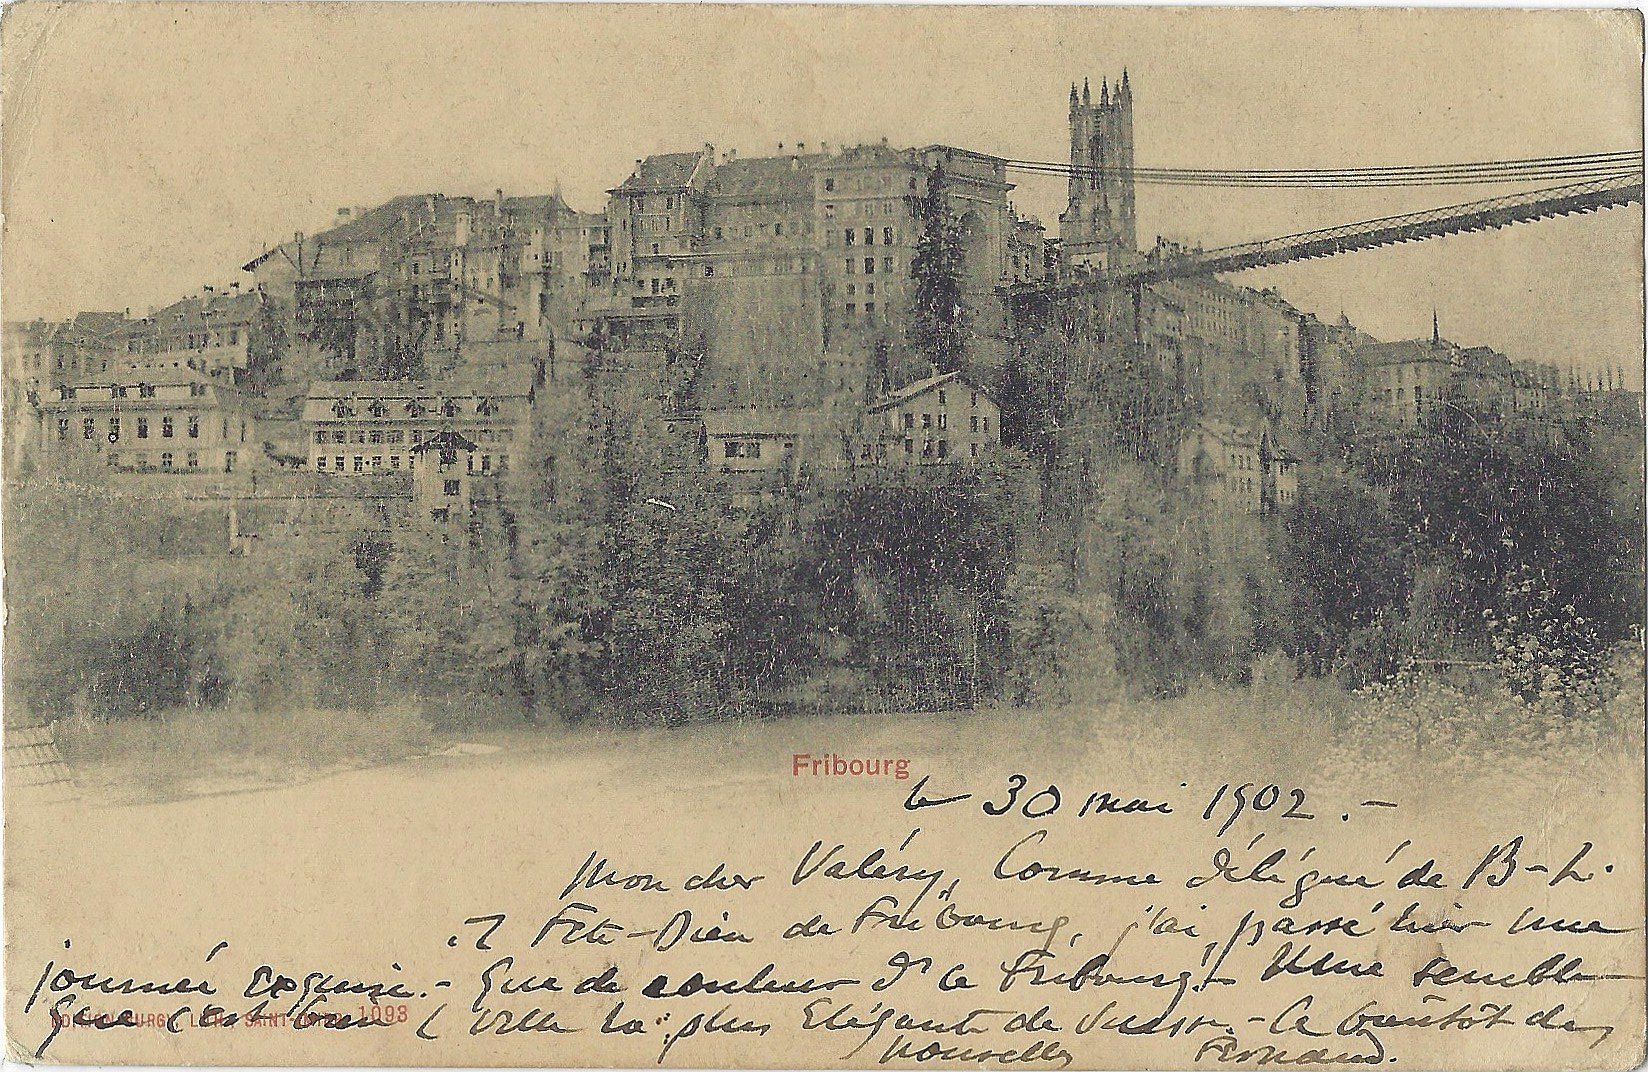 Fribourg
le 30 mai 1902. –
Mon cher Valéry, Comme délégué de B-L.
Fête-Dieu de Fribourg, j'ai passé hier une
journée exquise. – Que de couleur ce Fribourg! – Il me semble
que c'est bien la ville la plus élégante de Suisse. – A bientôt des
nouvelles Fernand.
EDITION BURGY, LITH. SAINT-IMIER 1093